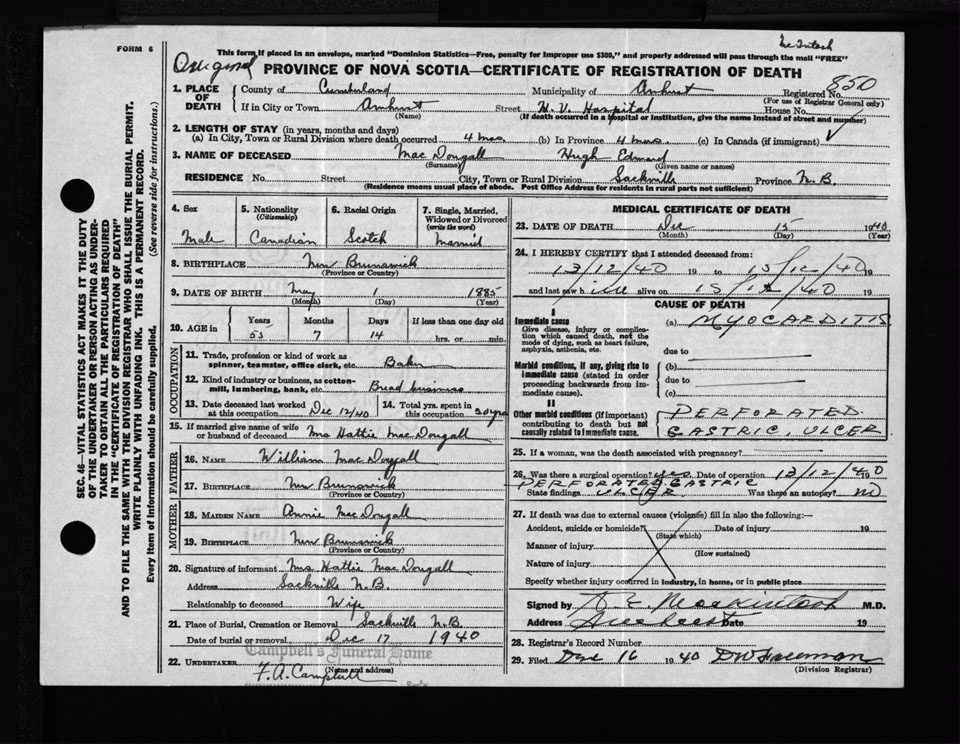 McIntosh
FORM 6
This form if placed in an envelope, marked "Dominion Statistics—Free, penalty for improper use $300," and properly addressed will pass through the mail "FREE"
Original PROVINCE OF NOVA SCOTIA—CERTIFICATE OF REGISTRATION OF DEATH
850
1. PLACE OF DEATH
County of Cumberland Municipality of Amherst Registered No.
(For use of Registrar General only)
If in City or Town Amherst Street H. V. Hospital House No.
(Name) (If death occurred in a hospital or institution, give the name instead of street and number)
2. LENGTH OF STAY (in years, months and days)
(a) In City, Town or Rural Division where death occurred 4 mos. (b) In Province 4 mos. (c) In Canada (if immigrant)
3. NAME OF DECEASED MacDougall Hugh Edward
(Surname) (Given name or names)
RESIDENCE No. Street City, Town or Rural Division Sackville Province N.B.
(Residence means usual place of abode. Post Office Address for residents in rural parts not sufficient)
SEC. 46—VITAL STATISTICS ACT MAKES IT THE DUTY
OF THE UNDERTAKER OR PERSON ACTING AS UNDER-
TAKER TO OBTAIN ALL THE PARTICULARS REQUIRED
IN THE "CERTIFICATE OF REGISTRATION OF DEATH"
AND TO FILE THE SAME WITH THE DIVISION REGISTRAR WHO SHALL ISSUE THE BURIAL PERMIT.
WRITE PLAINLY WITH UNFADING INK. THIS IS A PERMANENT RECORD.
Every item of Information should be carefully supplied. (See reverse side for instructions.)
4. Sex 5. Nationality 6. Racial Origin 7. Single, Married,
(Citizenship) Widowed or Divorced
(write the word)
Male Canadian Scotch Married
8. BIRTHPLACE New Brunswick
(Province or Country)
9. DATE OF BIRTH May 1885
(Month) (Day) (Year)
10. AGE in Years Months Days If less than one day old
55 7 14 hrs. or min.
OCCUPATION
11. Trade, profession or kind of work as
spinner, teamster, office clerk, etc. Baker
12. Kind of industry or business, as cotton-
mill, lumbering, bank, etc. Bread business
13. Date deceased last worked 14. Total yrs. spent in
at this occupation Dec 12/40 this occupation 20 yrs
15. If married give name of wife
or husband of deceased Mrs Hattie MacDougall
FATHER
16. NAME William MacDougall
17. BIRTHPLACE New Brunswick
(Province or Country)
MOTHER
18. MAIDEN NAME Annie MacDougall
19. BIRTHPLACE New Brunswick
(Province or Country)
20. Signature of informant Mrs. Hattie MacDougall
Address Sackville N.B.
Relationship to deceased Wife
21. Place of Burial, Cremation or Removal Sackville N.B.
Date of burial or removal Dec 17 1940
Campbell's Funeral Home
22. UNDERTAKER F. A. Campbell
(Name and address)
MEDICAL CERTIFICATE OF DEATH
23. DATE OF DEATH Dec 15 1940
(Month) (Day) (Year)
24. I HEREBY CERTIFY that I attended deceased from:
13/12/40 19 to 15/12/40 19
and last saw him alive on 15/12/40 19
CAUSE OF DEATH
I
Immediate cause (a) MYOCARDITIS
Give disease, injury or complica-
tion which caused death, not the
mode of dying, such as heart failure,
asphyxia, asthenia, etc. due to
Morbid conditions, if any, giving rise to (b)
immediate cause (stated in order due to
proceeding backwards from im-
mediate cause). (c)
II
Other morbid conditions (if important) PERFORATED
contributing to death but not
causally related to immediate cause. GASTRIC, ULCER
25. If a woman, was the death associated with pregnancy?
26. Was there a surgical operation? yes. Date of operation 13/12/40
PERFORATED GASTRIC
State findings ULCER Was there an autopsy? no
27. If death was due to external causes (violence) fill in also the following:—
Accident, suicide or homicide? Date of injury 19
(State which)
Manner of injury
(How sustained)
Nature of injury
Specify whether injury occurred in industry, in home, or in public place
Signed by M.D.
Address Amherst Date 19
28. Registrar's Record Number
29. Filed Dec 16 1940 DW Freeman
(Division Registrar)